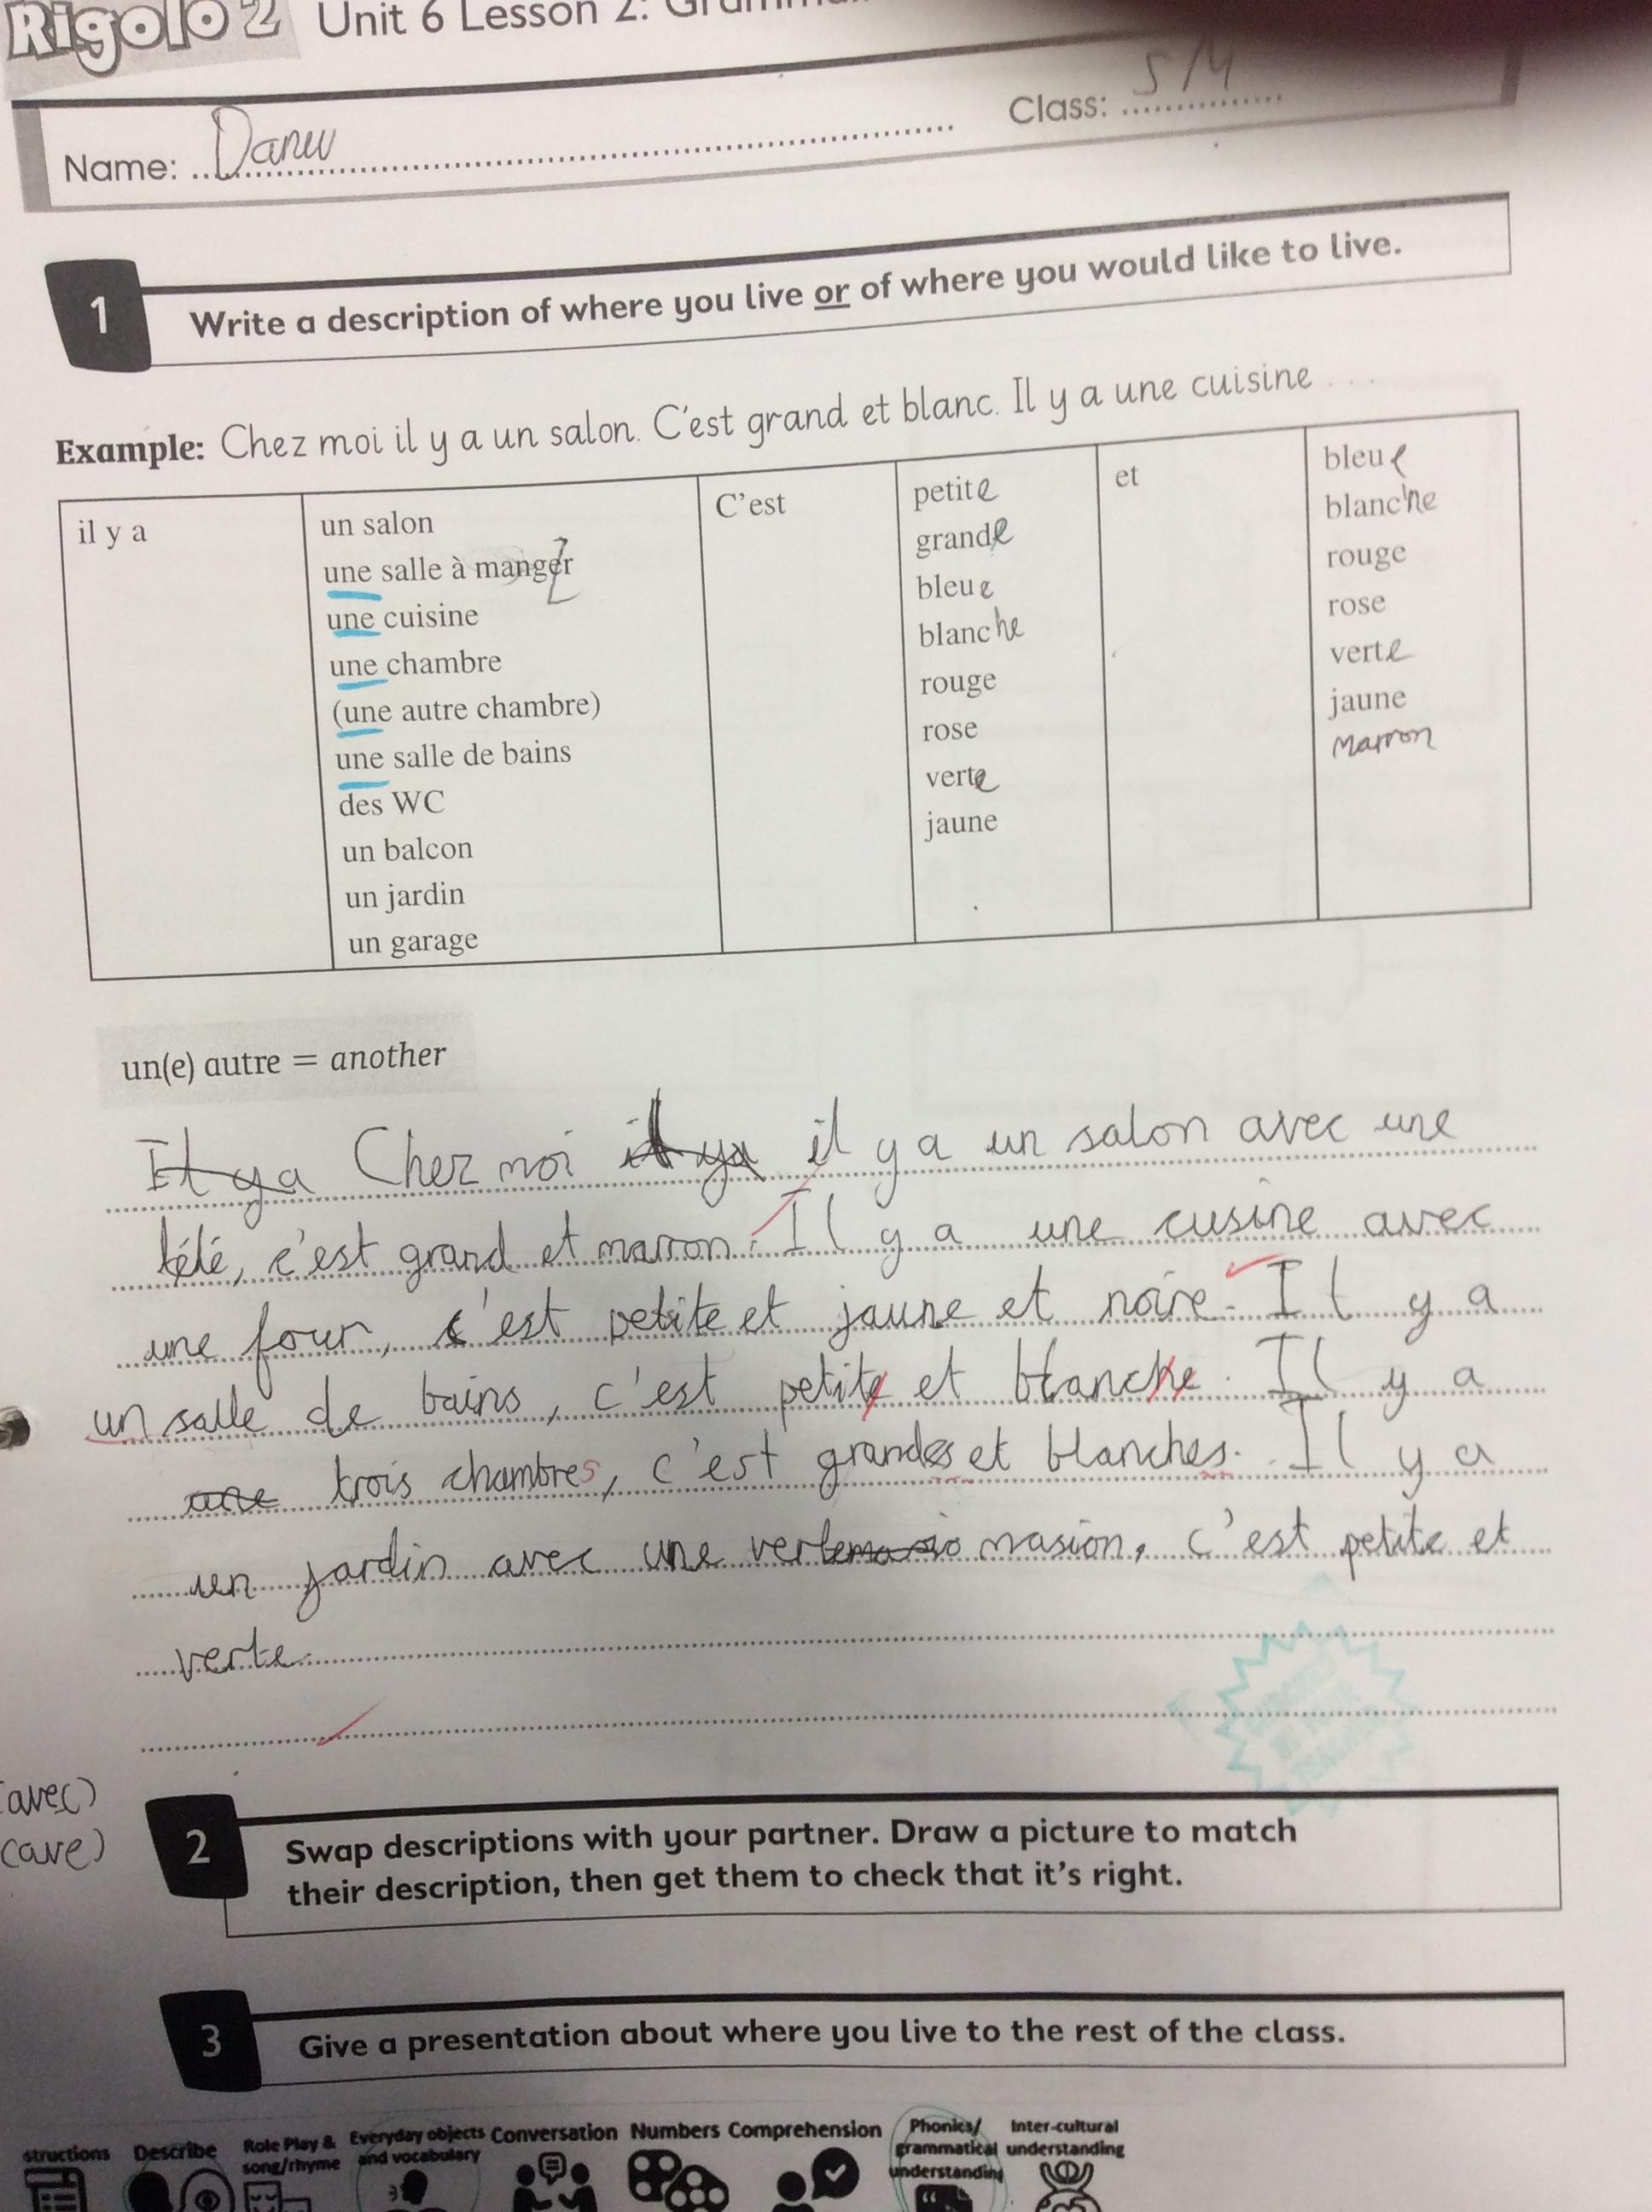 Rigolo 2 Unit 6 Lesson 2:
Name: Class: 5/4
1 Write a description of where you live or of where you would like to live.
Example: Chez moi il y a un salon. C'est grand et blanc. Il y a une cuisine ...
il y a
un salon
une salle à manger
une cuisine
une chambre
(une autre chambre)
une salle de bains
des WC
un balcon
un jardin
un garage
C'est
petite
grande
bleue
blanche
rouge
rose
verte
jaune
et
bleue
blanche
rouge
rose
verte
jaune
marron
un(e) autre = another
Il y a Chez moi il ya il y a un salon avec une
télé, c'est grand et marron. Il y a une cusine avec
une four, c'est petite et jaune et noire. Il y a
un salle de bains, c'est petite et blanche. Il y a
une trois chambres, c'est grandes et blanches. Il y a
un jardin avec une verte masion, c'est petite et
verte.
(avec)
(cave)
2 Swap descriptions with your partner. Draw a picture to match
their description, then get them to check that it's right.
3 Give a presentation about where you live to the rest of the class.
structions Describe Role Play & song/rhyme Everyday objects and vocabulary Conversation Numbers Comprehension Phonics/ grammatical understanding Inter-cultural understanding